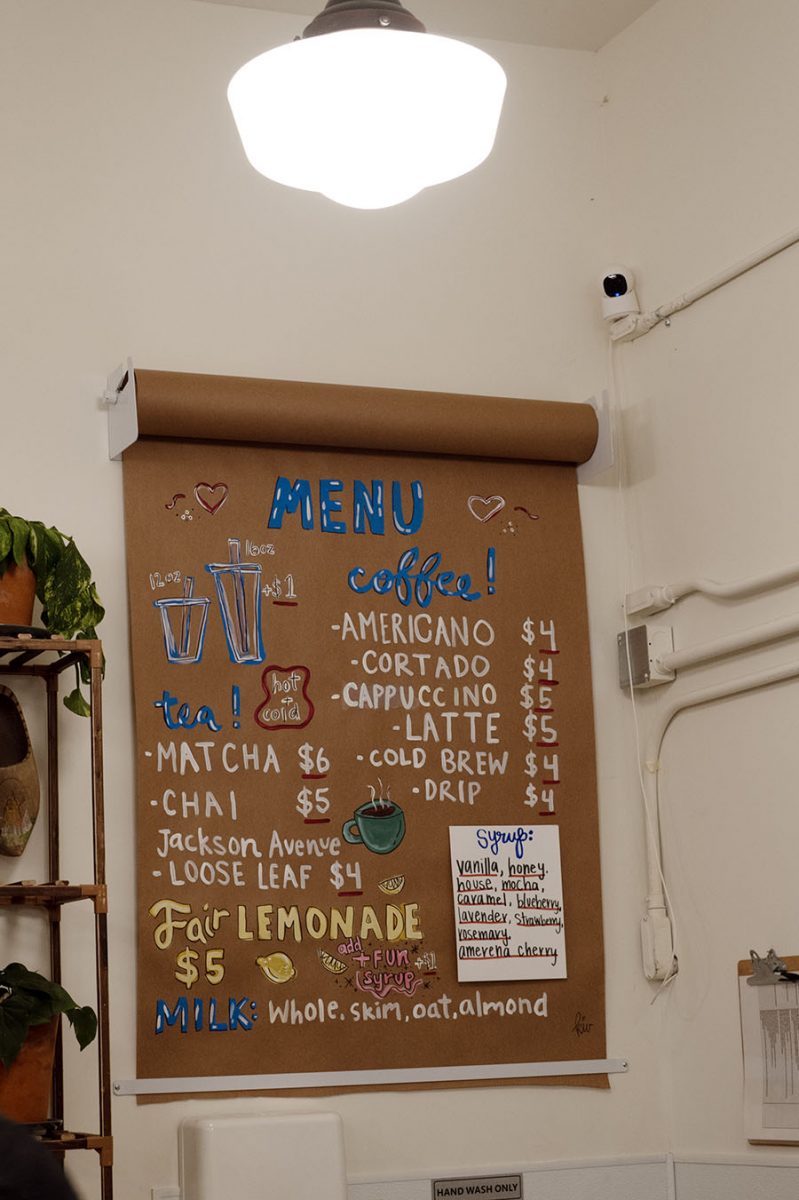 MENU
12oz
16oz
+$1
coffee!
-AMERICANO $4
-CORTADO $4
-CAPPUCCINO $5
-LATTE $5
-COLD BREW $4
-DRIP $4
tea!
hot
+
cold
-MATCHA $6
-CHAI $5
Jackson Avenue
-LOOSE LEAF $4
Fair LEMONADE
$5
add
+FUN
syrup
+$1
MILK: Whole, skim, oat, almond
Syrup:
vanilla, honey,
house, mocha,
caramel, blueberry,
lavender, strawberry,
rosemary,
amerena cherry
HAND WASH ONLY